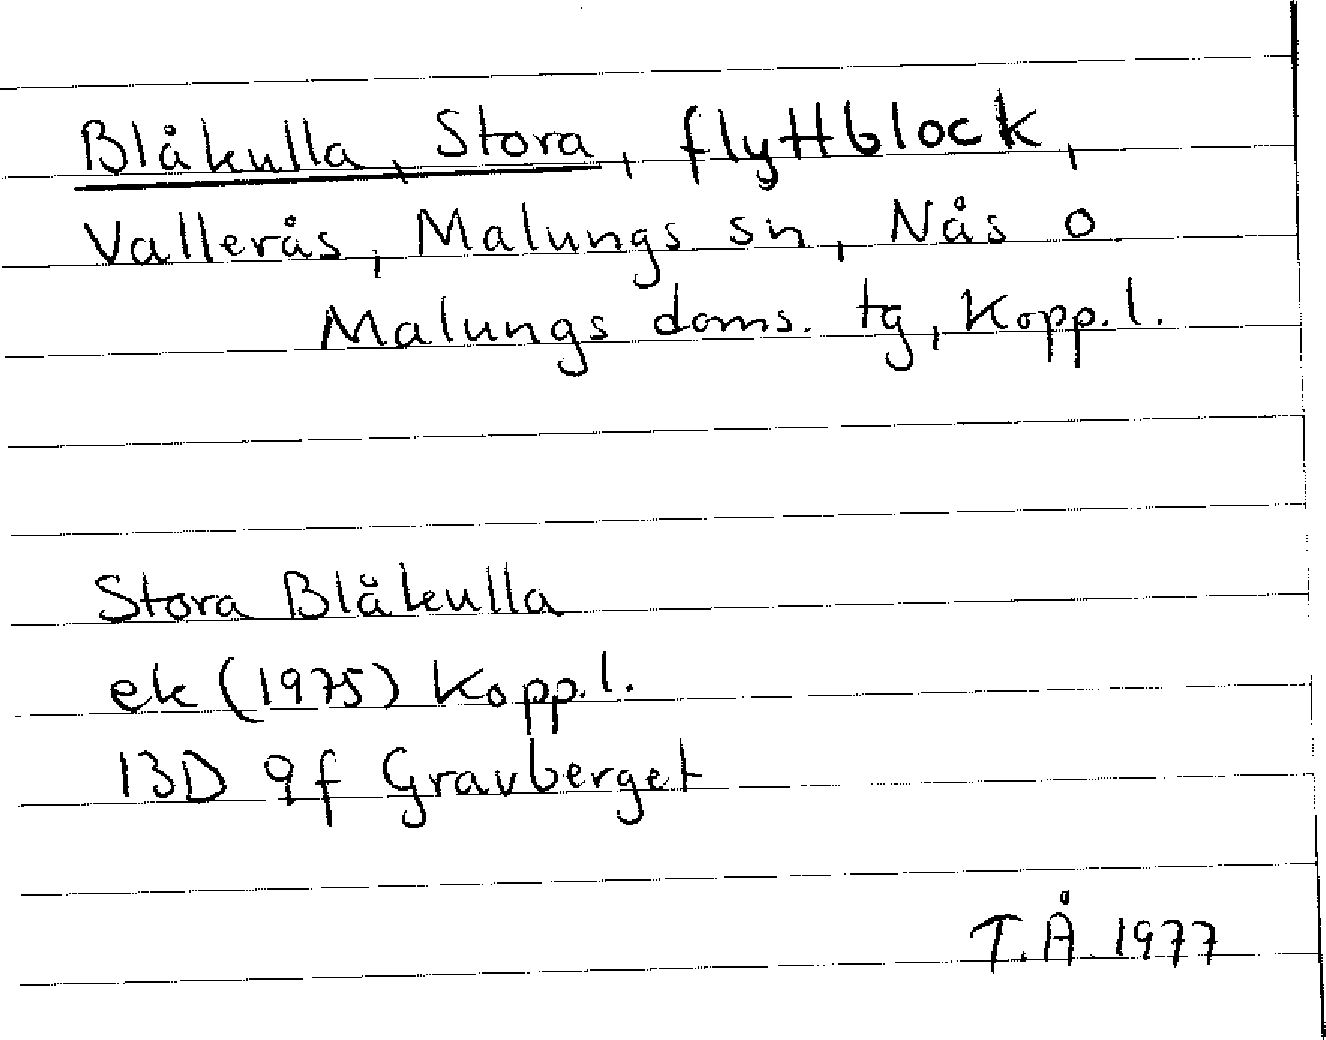 Blåkulla, Stora, flyttblock,
Vallerås, Malungs sn, Nås o
Malungs doms. tg, Kopp. l.
Stora Blåkulla
ek (1975) Kopp. l.
13D 9f Gravberget
T.Å. 1977